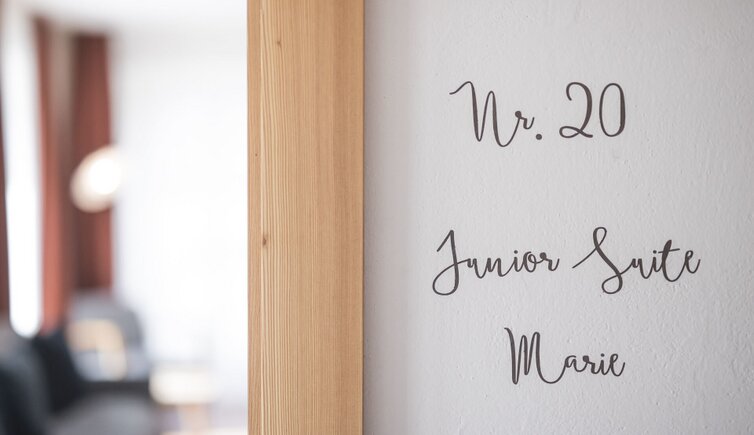 Nr. 20
Junior Suite
Marie